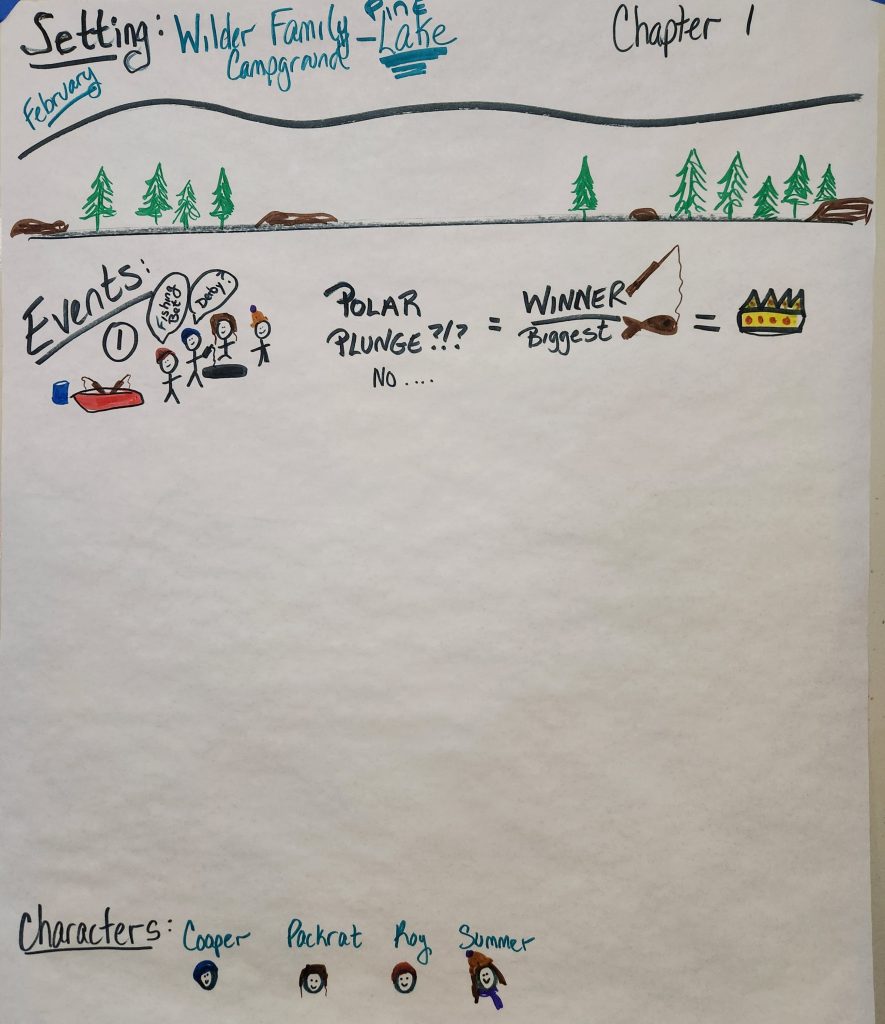 Setting: Wilder Family
Campground
– Pine
Lake
Chapter 1
February
Events:
①
Fishing
Bet?
Derby?
POLAR
PLUNGE?!?
NO....
=
WINNER
Biggest
=
Characters:
Cooper
Packrat
Roy
Summer